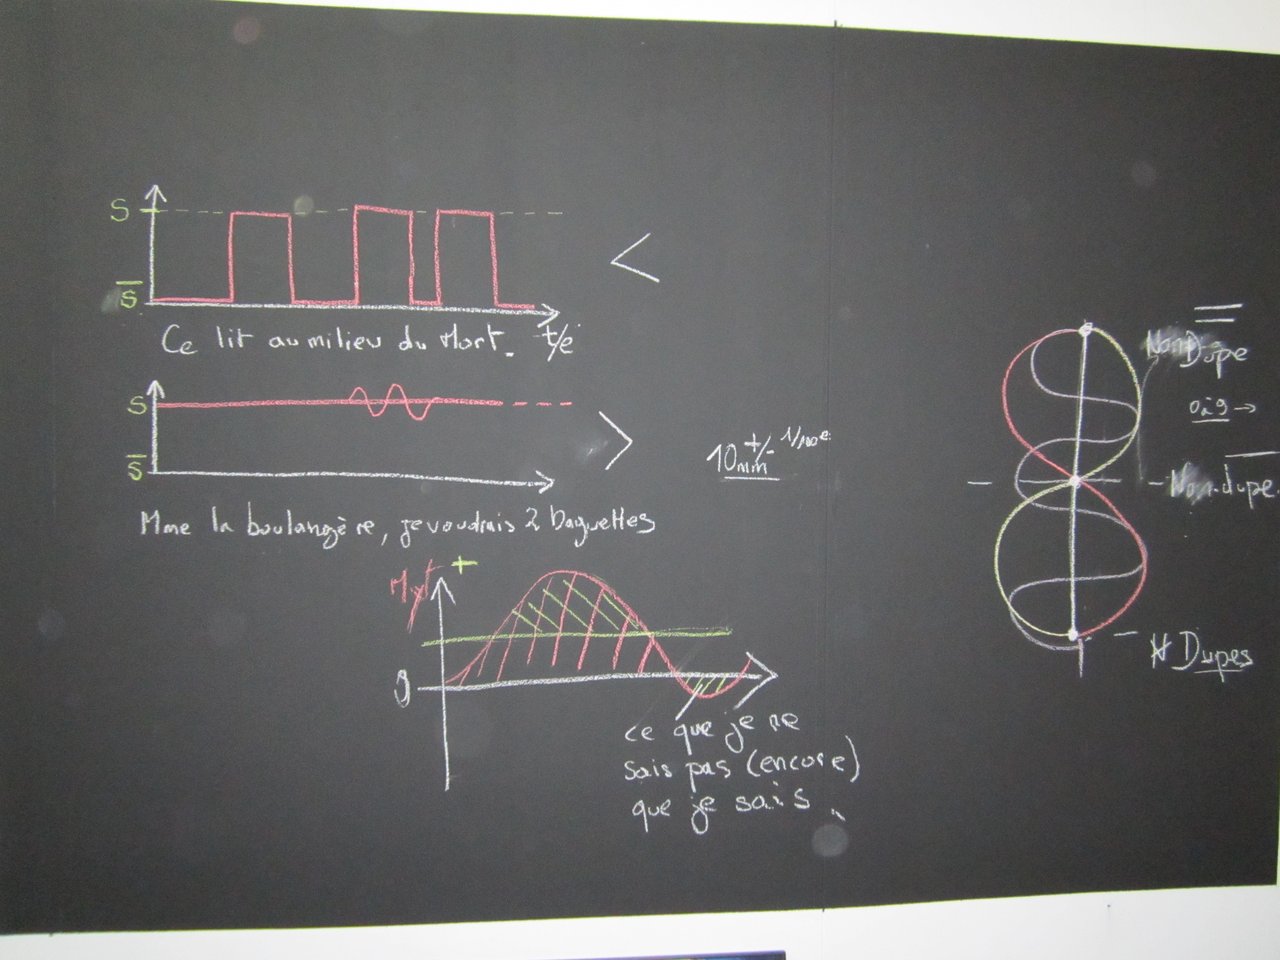 S
S̅
Ce lit au milieu du Mort. t/e
S
S̅
Mme la boulangère, je voudrais 2 baguettes
10mm +/- 1/100e
+
0
ce que je ne
sais pas (encore)
que je sais.
Non Dupe
0 à 9 →
Non-dupe
Dupes